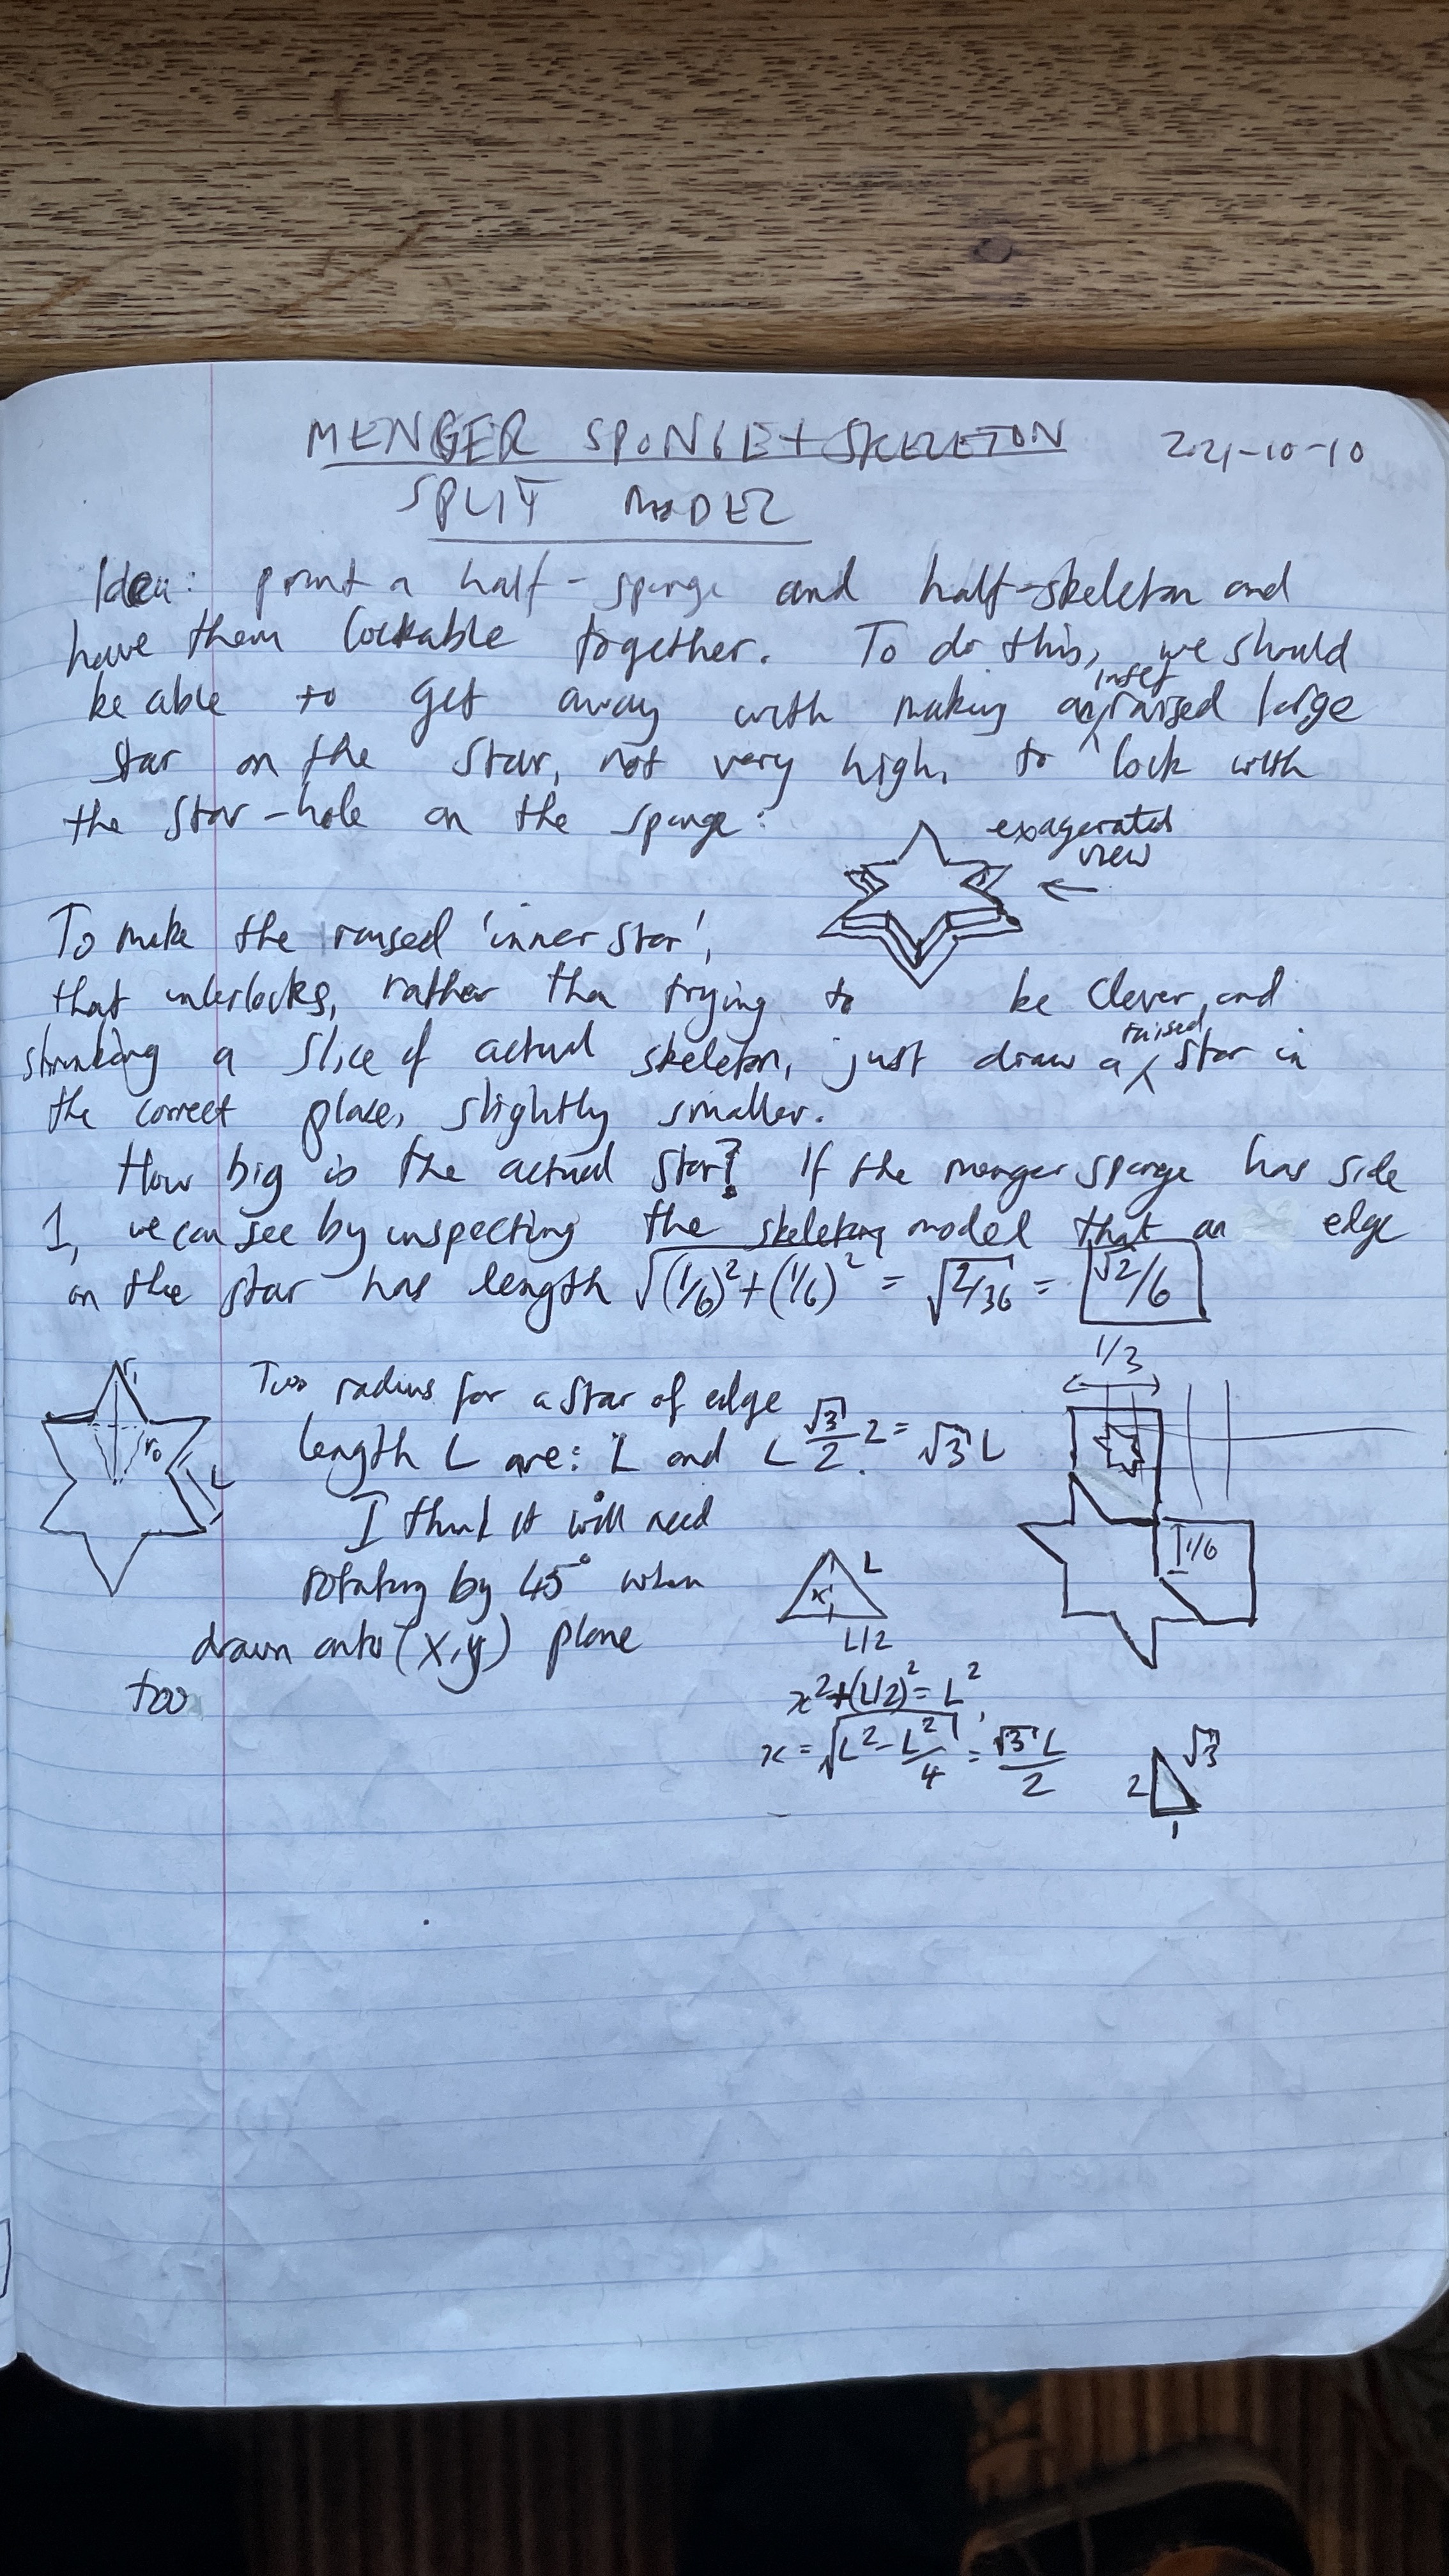 MENGER SPONGE + SKELETON 2021-10-10
SPLIT MODEL
Idea: print a half-sponge and half-skeleton and
have them lockable together. To do this, we should
be able to get away with making an inset raised large
star on the star, not very high, to lock with
the star-hole on the sponge:
exagerated
view
To make the raised 'inner star',
that interlocks, rather tha trying to be clever and
shrinking a slice of actual skeleton, just draw a raised star in
the correct place, slightly smaller.
How big is the actual star? If the menger sponge has side
1, we can see by inspecting the skeleton model that an edge
on the star has length √((1/6)²+(1/6)²) = √(2/36) = √2/6
1/3
r₁
r₀
L
Two radius for a star of edge
length L are: L and L √3/2 . 2 = √3 L
I think it will need
rotating by 45° when
drawn onto (x,y) plane
too
1/6
L
x
L/2
x²+(L/2)²=L²,
x = √(L²-L²/4) = √3 L/2
√3
2
1